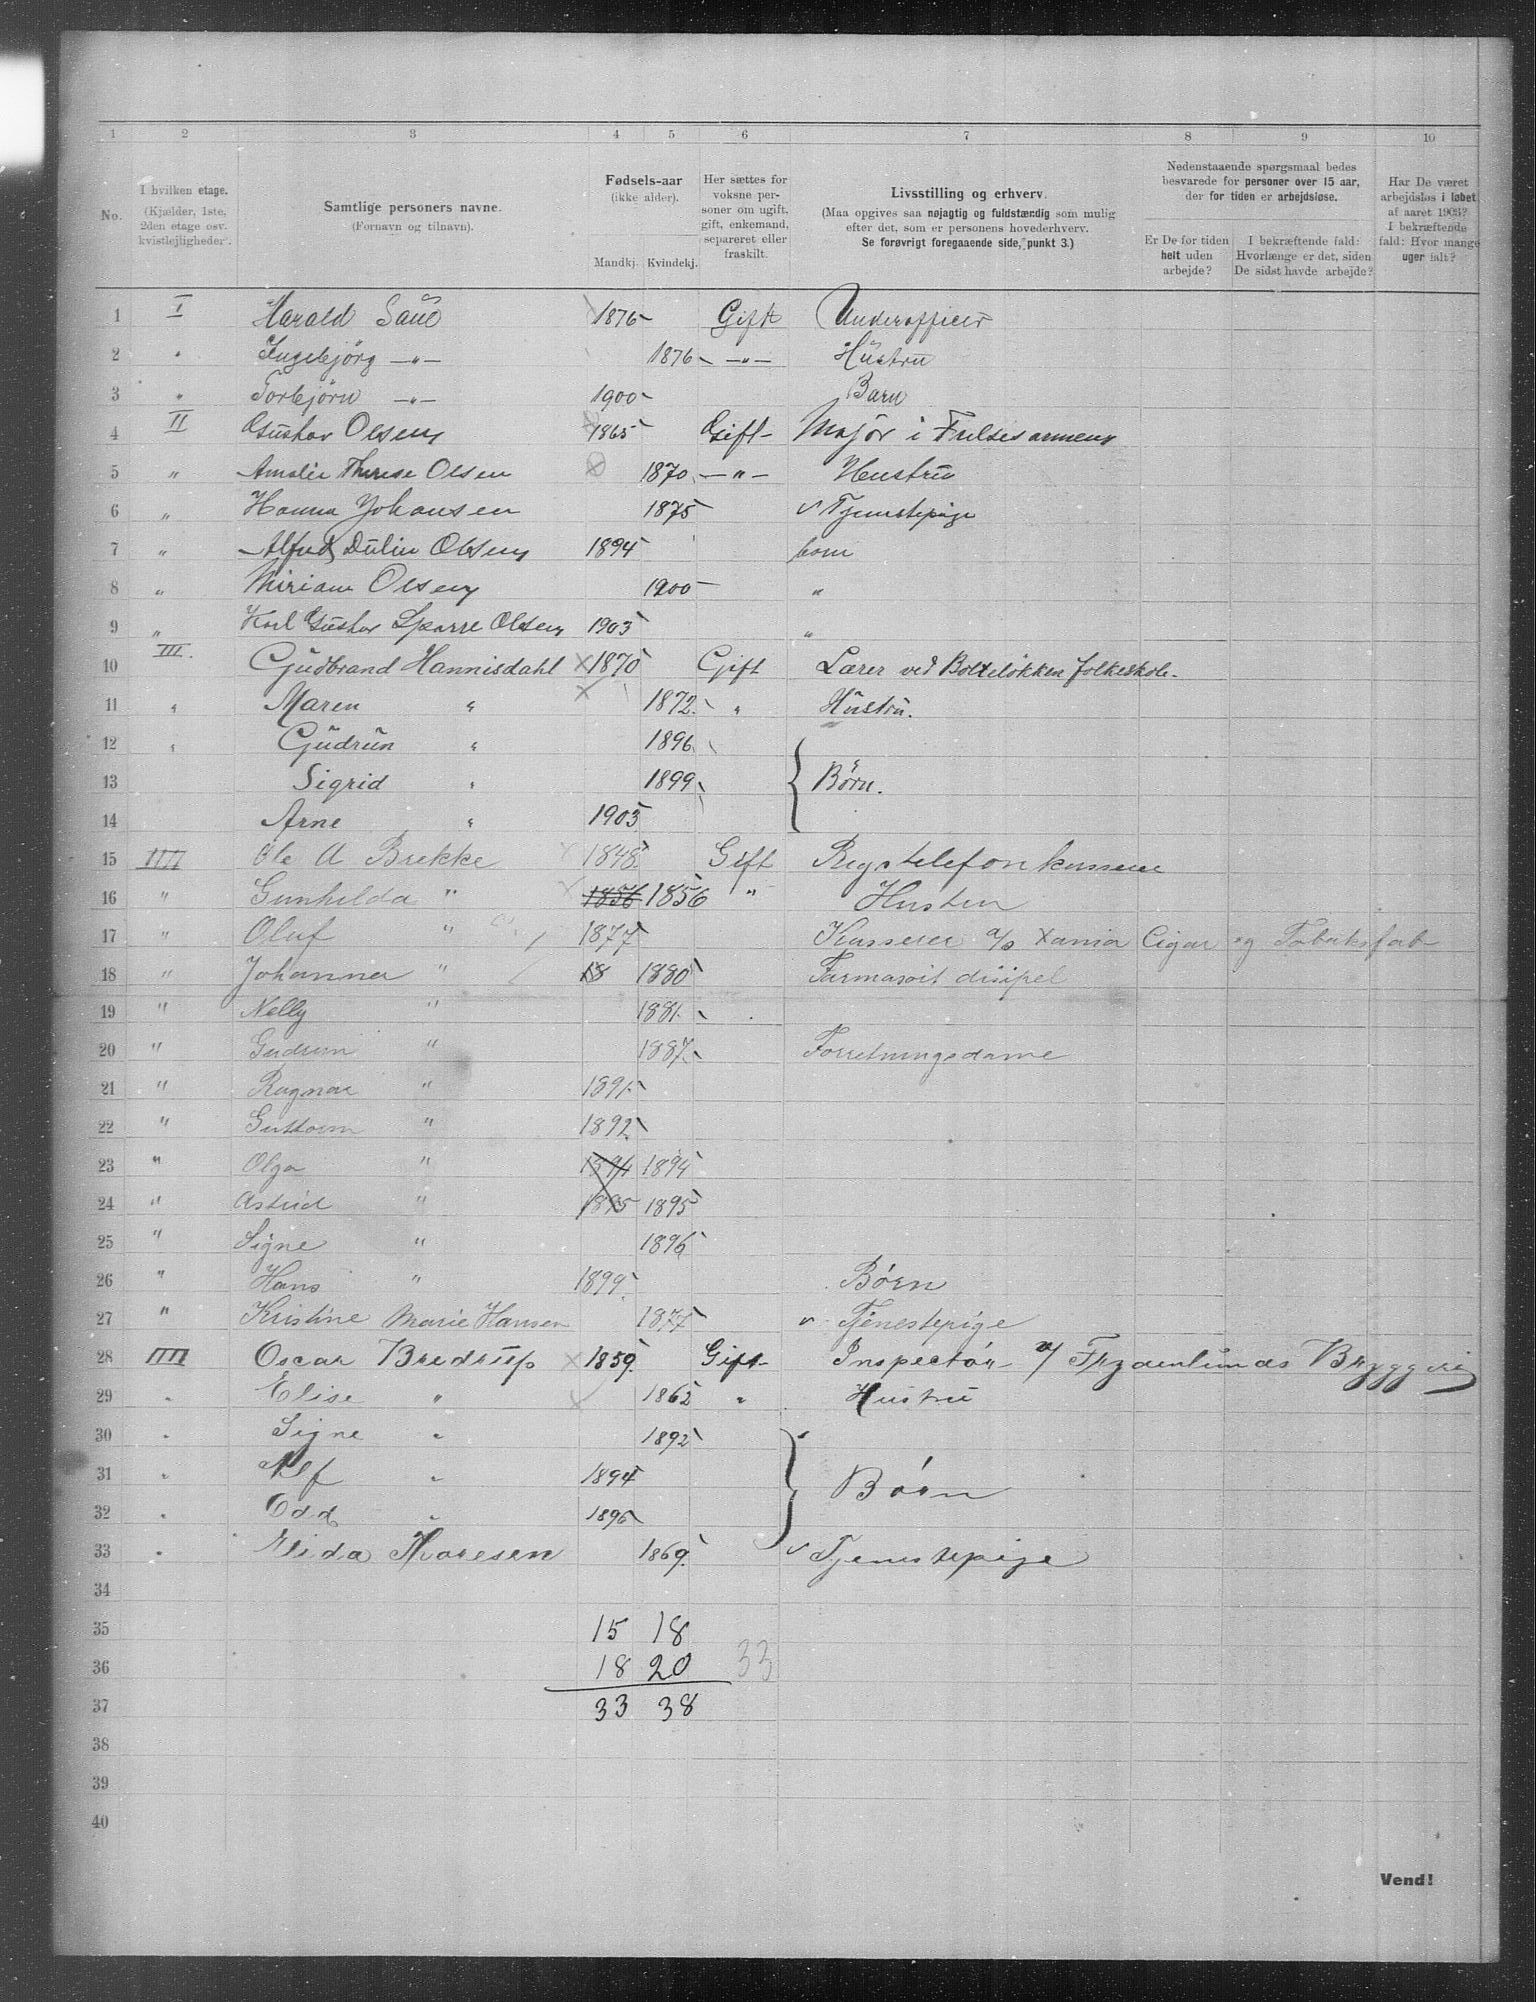 1 2 3 4 5 6 7 8 9 10
No. I hvilken etage. (Kjælder, 1ste, 2den etage osv. kvistlejligheder). Samtlige personers navne. (Fornavn og tilnavn). Fødsels-aar (ikke alder). Mandkj. Kvindekj. Her sættes for voksne personer om ugift, gift, enkemand, separeret eller fraskilt. Livsstilling og erhverv. (Maa opgives saa nøjagtig og fuldstændig som mulig efter det, som er personens hovederhverv. Se forøvrigt foregaaende side, punkt 3.) Nedenstaaende spørgsmaal bedes besvarede for personer over 15 aar, der for tiden er arbejdsløse. Er De for tiden helt uden arbejde? I bekræftende fald: Hvorlænge er det, siden De sidst havde arbejde? Har De været arbejdsløs i løbet af aaret 1903? I bekræftende fald: Hvor mange uger ialt?
1 I Harald Saue 1876 Gift Underofficer
2 " Ingebjörg —"— 1876 —"— Hustru
3 " Torbjörn —"— 1900 Barn
4 II Gustav Olsen 1865 Gift Major i Frelsesarmeen
5 " Amalie Therese Olsen 1870 —"— Hustru
6 " Hanna Johansen 1875 Tjenestepige
7 " Alfred Dulin Olsen 1894 barn
8 " Miriam Olsen 1900 "
9 " Karl Gustav Sparre Olsen 1903 "
10 III. Gudbrand Hannisdahl 1870 Gift Lærer ved Bolteløkken folkeskole.
11 " Maren " 1872. " Hustru.
12 " Gudrun " 1896
13 Sigrid " 1899 Børn.
14 Arne " 1903
15 IIII Ole A Brekke 1848 Gift Rigstelefonkasserer
16 " Gunhilda " 1856 1856 " Hustru
17 " Oluf " 1877 Kasserer a/s Xania Cigar og Tobaksfab
18 " Johanna " 18 1880 Farmasöit disipel
19 " Nelly " 1881
20 " Gudrun " 1887 Forretningsdame
21 " Ragnar " 1891
22 " Guttorm " 1892
23 " Olga " 1894 1894
24 " Astrid " 1895 1895
25 " Signe " 1896
26 " Hans " 1899. Börn
27 " Kristine Marie Hansen 1877 Tjenestepige
28 IIII Oscar Bredrup 1859 Gift Inspectör v/ Frydenlunds Bryggeri
29 " Elise " 1862 " Hustru
30 " Signe " 1892
31 " Alf " 1894 Börn
32 " Odd " 1896
33 " Elida Thoresen 1869 Tjenestepige
34
35 15 18
36 18 20 33
37 33 38
38
39
40
Vend!